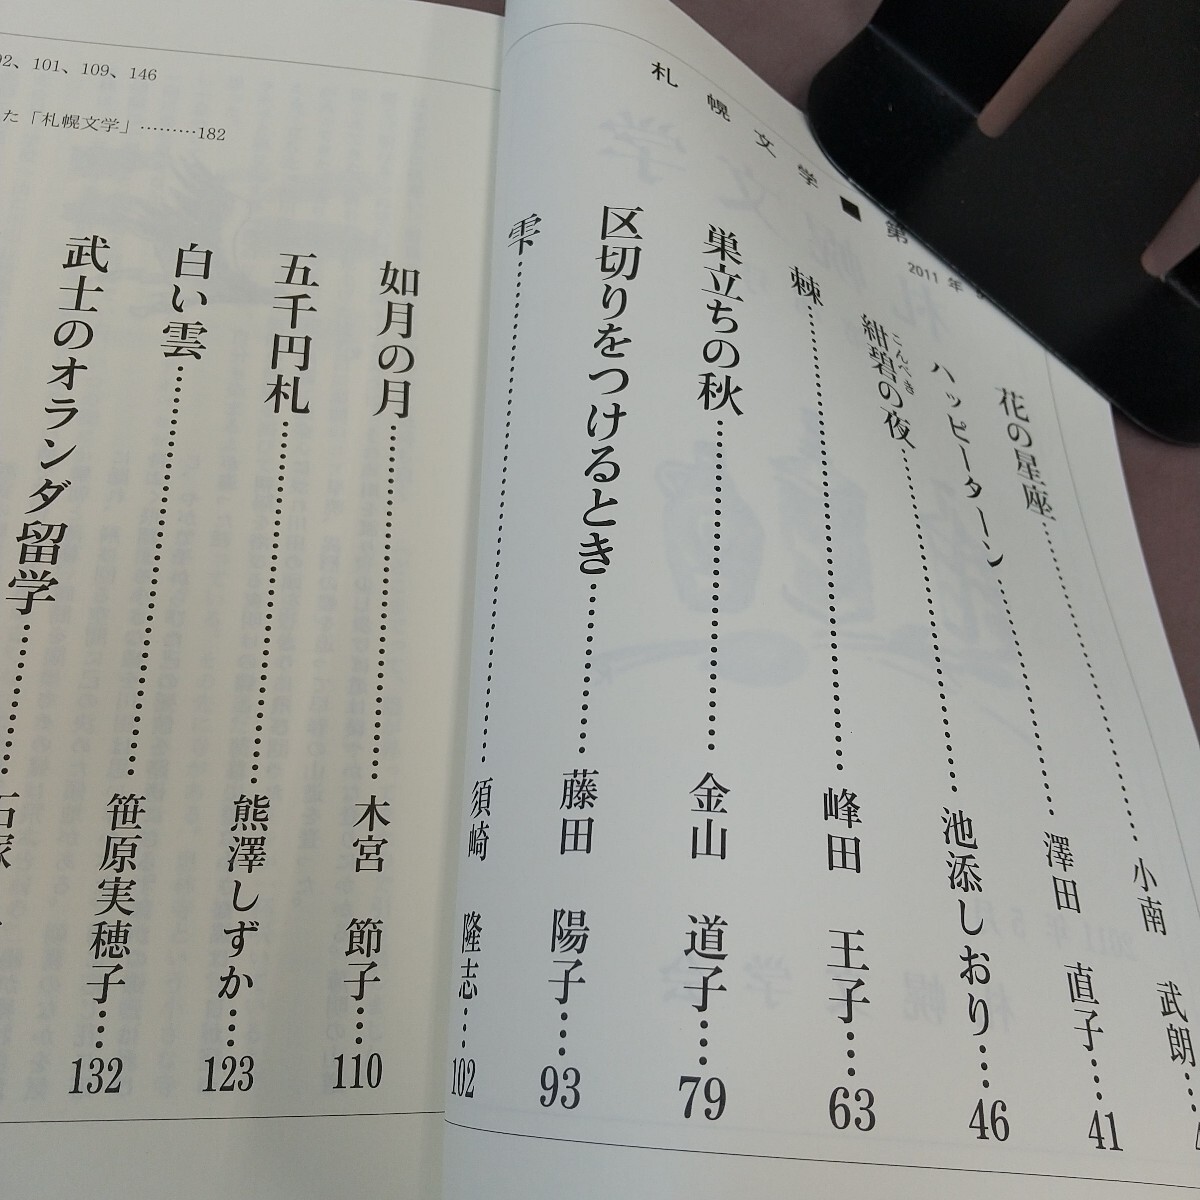 札幌文学■第
2011年
花の星座……小南　武朗…
ハッピーターン……澤田　直子…41
紺碧の夜……池添しおり…46
こんぺき
棘……峰田　王子…63
巣立ちの秋……金山　道子…79
区切りをつけるとき……藤田　陽子…93
雫……須崎　隆志…102
如月の月……木宮　節子…110
五千円札……熊澤しずか…123
白い雲……笹原実穂子…132
武士のオランダ留学……石塚
92、101、109、146
た「札幌文学」………182